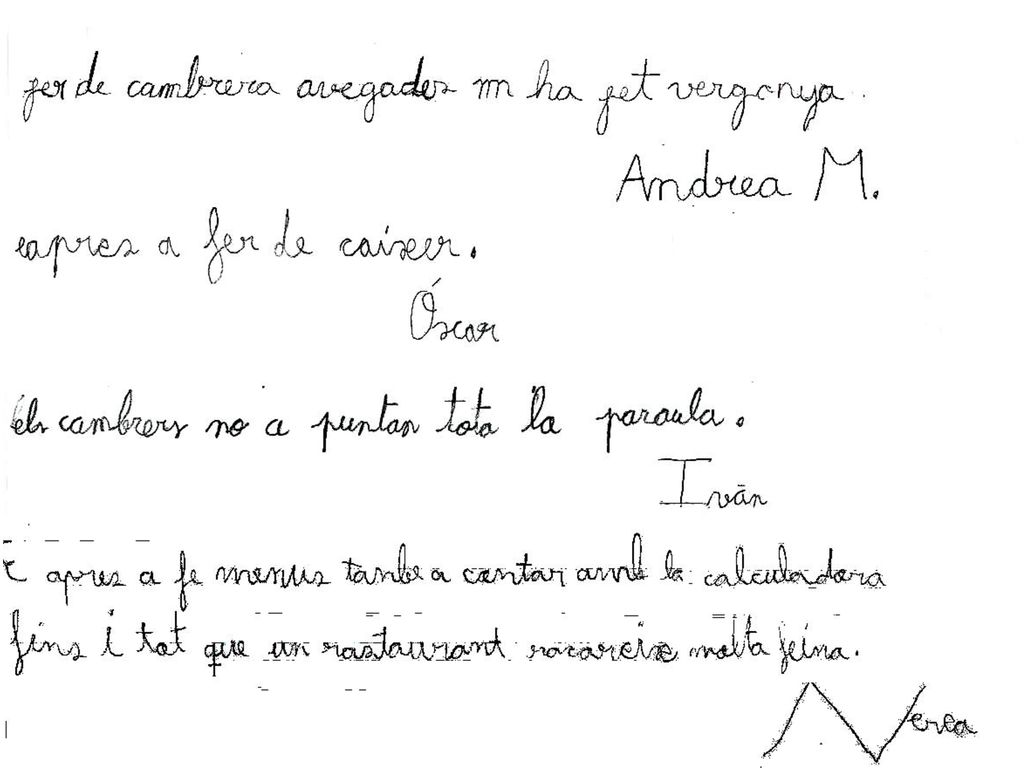 fer de cambrera avegades m ha fet vergonya.
Andrea M.
eapres a fer de caixer.
Óscar
els cambrers no a puntan tota la paraula.
Iván
e apres a fe menus tambe a contar amb la calculadora
fins i tot que un rastaurant racareix molta feina.
Nerea